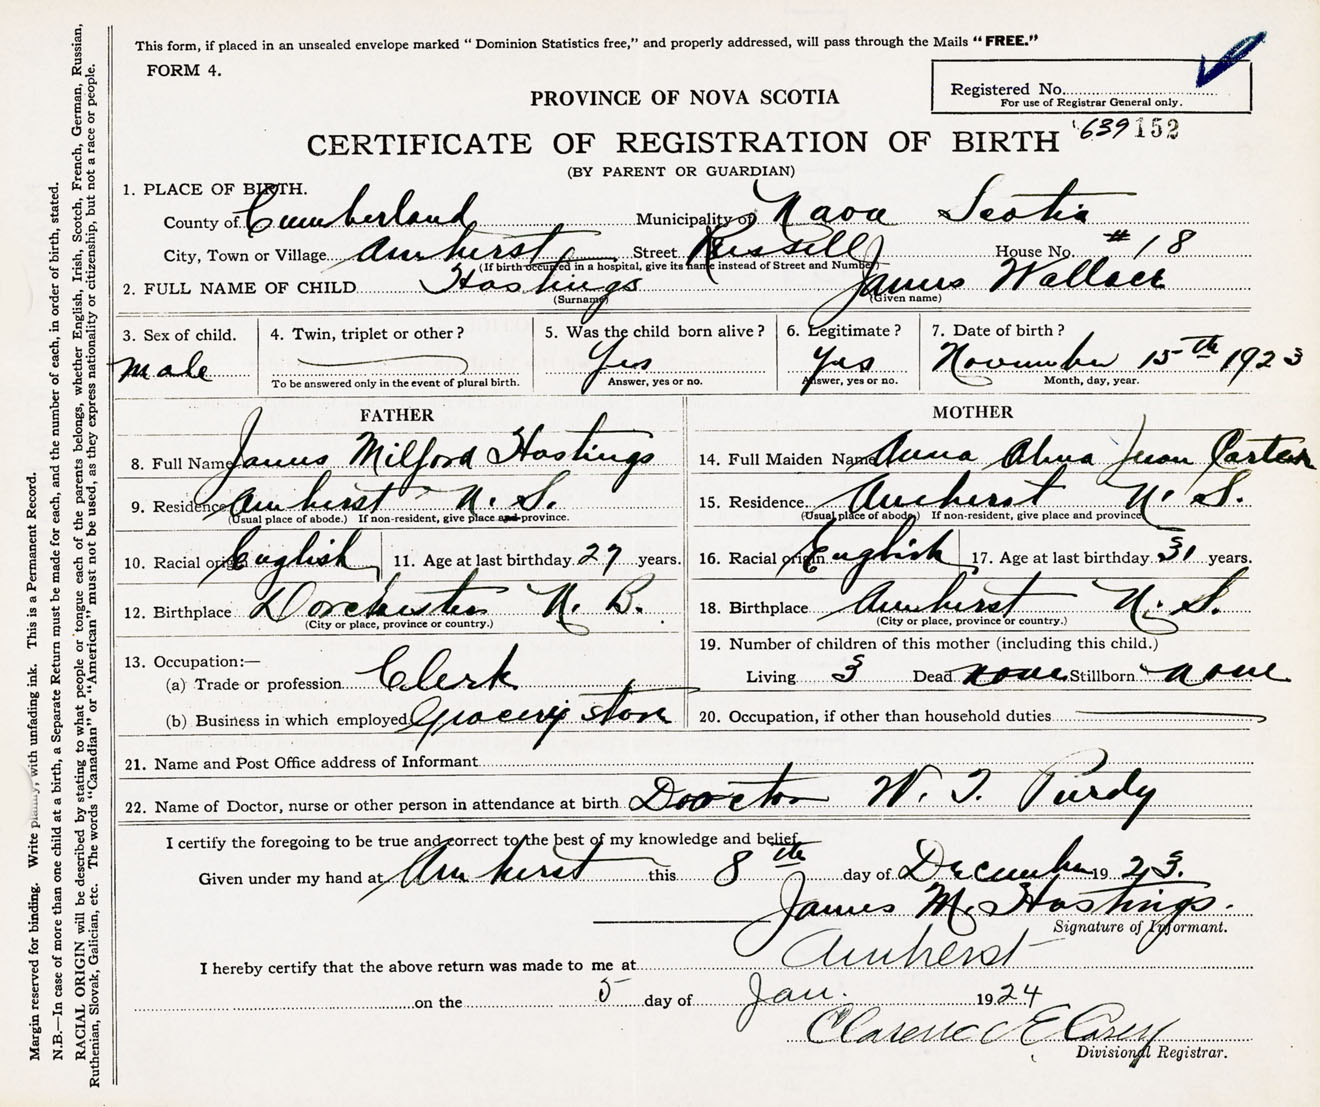 This form, if placed in an unsealed envelope marked “Dominion Statistics free,” and properly addressed, will pass through the Mails “FREE.”
FORM 4.
Registered No.
For use of Registrar General only.
PROVINCE OF NOVA SCOTIA
639152
CERTIFICATE OF REGISTRATION OF BIRTH
(BY PARENT OR GUARDIAN)
1. PLACE OF BIRTH.
County of Cumberland Municipality of Nova Scotia
City, Town or Village Amherst Street Russell House No. #18
(If birth occurred in a hospital, give its name instead of Street and Number)
2. FULL NAME OF CHILD Hastings James Wallace
(Surname) (Given name)
3. Sex of child. 4. Twin, triplet or other? 5. Was the child born alive? 6. Legitimate? 7. Date of birth?
male Yes Yes November 15th 1923
To be answered only in the event of plural birth. Answer, yes or no. Answer, yes or no. Month, day, year.
FATHER MOTHER
8. Full Name James Milford Hastings 14. Full Maiden Name Anna Alma Jean Carter
9. Residence Amherst N. S. 15. Residence Amherst N. S.
(Usual place of abode.) If non-resident, give place and province. (Usual place of abode) If non-resident, give place and province
10. Racial origin English 11. Age at last birthday 27 years. 16. Racial origin English 17. Age at last birthday 31 years.
12. Birthplace Dorchester N. B. 18. Birthplace Amherst N. S.
(City or place, province or country.) (City or place, province or country.)
19. Number of children of this mother (including this child.)
13. Occupation:—
(a) Trade or profession Clerk Living 3 Dead none Stillborn none
(b) Business in which employed Grocery store 20. Occupation, if other than household duties
21. Name and Post Office address of Informant
22. Name of Doctor, nurse or other person in attendance at birth Dooctor W. T. Purdy
I certify the foregoing to be true and correct to the best of my knowledge and belief.
Given under my hand at Amherst this 8th day of December 1923.
James M. Hastings.
Signature of Informant.
I hereby certify that the above return was made to me at Amherst
on the 5 day of Jan. 1924
Clarence E Casey
Divisional Registrar.
Margin reserved for binding. Write plainly, with unfading ink. This is a Permanent Record.
N.B.—In case of more than one child at a birth, a Separate Return must be made for each, and the number of each, in order of birth, stated.
RACIAL ORIGIN will be described by stating to what people or tongue each of the parents belongs, whether English, Irish, Scotch, French, German, Russian,
Ruthenian, Slovak, Galician, etc. The words “Canadian” or “American” must not be used, as they express nationality or citizenship, but not a race or people.